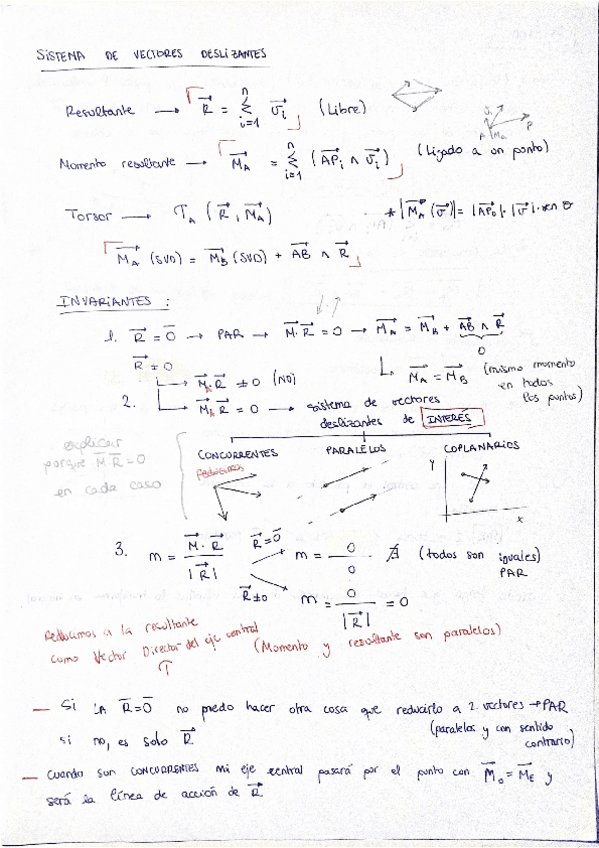 SISTEMA DE VECTORES DESLIZANTES
Resultante → R⃗ = Σ_{i=1}^{n} v⃗ᵢ (Libre)
Momento resultante → M⃗_A = Σ_{i=1}^{n} (AP⃗ᵢ ∧ v⃗ᵢ) (Ligado a un punto)
Torsor → τ_A (R⃗, M⃗_A) * |M⃗_A (v⃗)| = |AP⃗₀|·|v⃗|·sen θ
M⃗_A (SVD) = M⃗_B (SVD) + AB⃗ ∧ R⃗
INVARIANTES :
1. R⃗ = 0⃗ → PAR → M⃗·R⃗ = 0 → M⃗_A = M⃗_B + AB⃗ ∧ R⃗
0
R⃗ ≠ 0 M⃗_A = M⃗_B (mismo momento en todos los puntos)
M⃗·R⃗ ≠ 0 (NO)
2. M⃗·R⃗ = 0 → sistema de vectores
deslizantes de INTERÉS
explicar
porque M⃗ R⃗ = 0
en cada caso
CONCURRENTES PARALELOS COPLANARIOS
Y
x
3. m = M⃗·R⃗ / |R⃗| R⃗ = 0⃗ m = 0 / 0 ∄ (todos son iguales)
PAR
R⃗ ≠ 0 m = 0 / |R⃗| = 0
Reducimos a la resultante
como Vector Director del eje central (Momento y resultante son paralelos)
— Si la R⃗ = 0⃗ no puedo hacer otra cosa que reducirlo a 2 vectores → PAR
(paralelos y con sentido
contrario)
si no, es solo R⃗
— Cuando son CONCURRENTES mi eje central pasará por el punto con M⃗₀ = M⃗_E y
será la línea de acción de R⃗